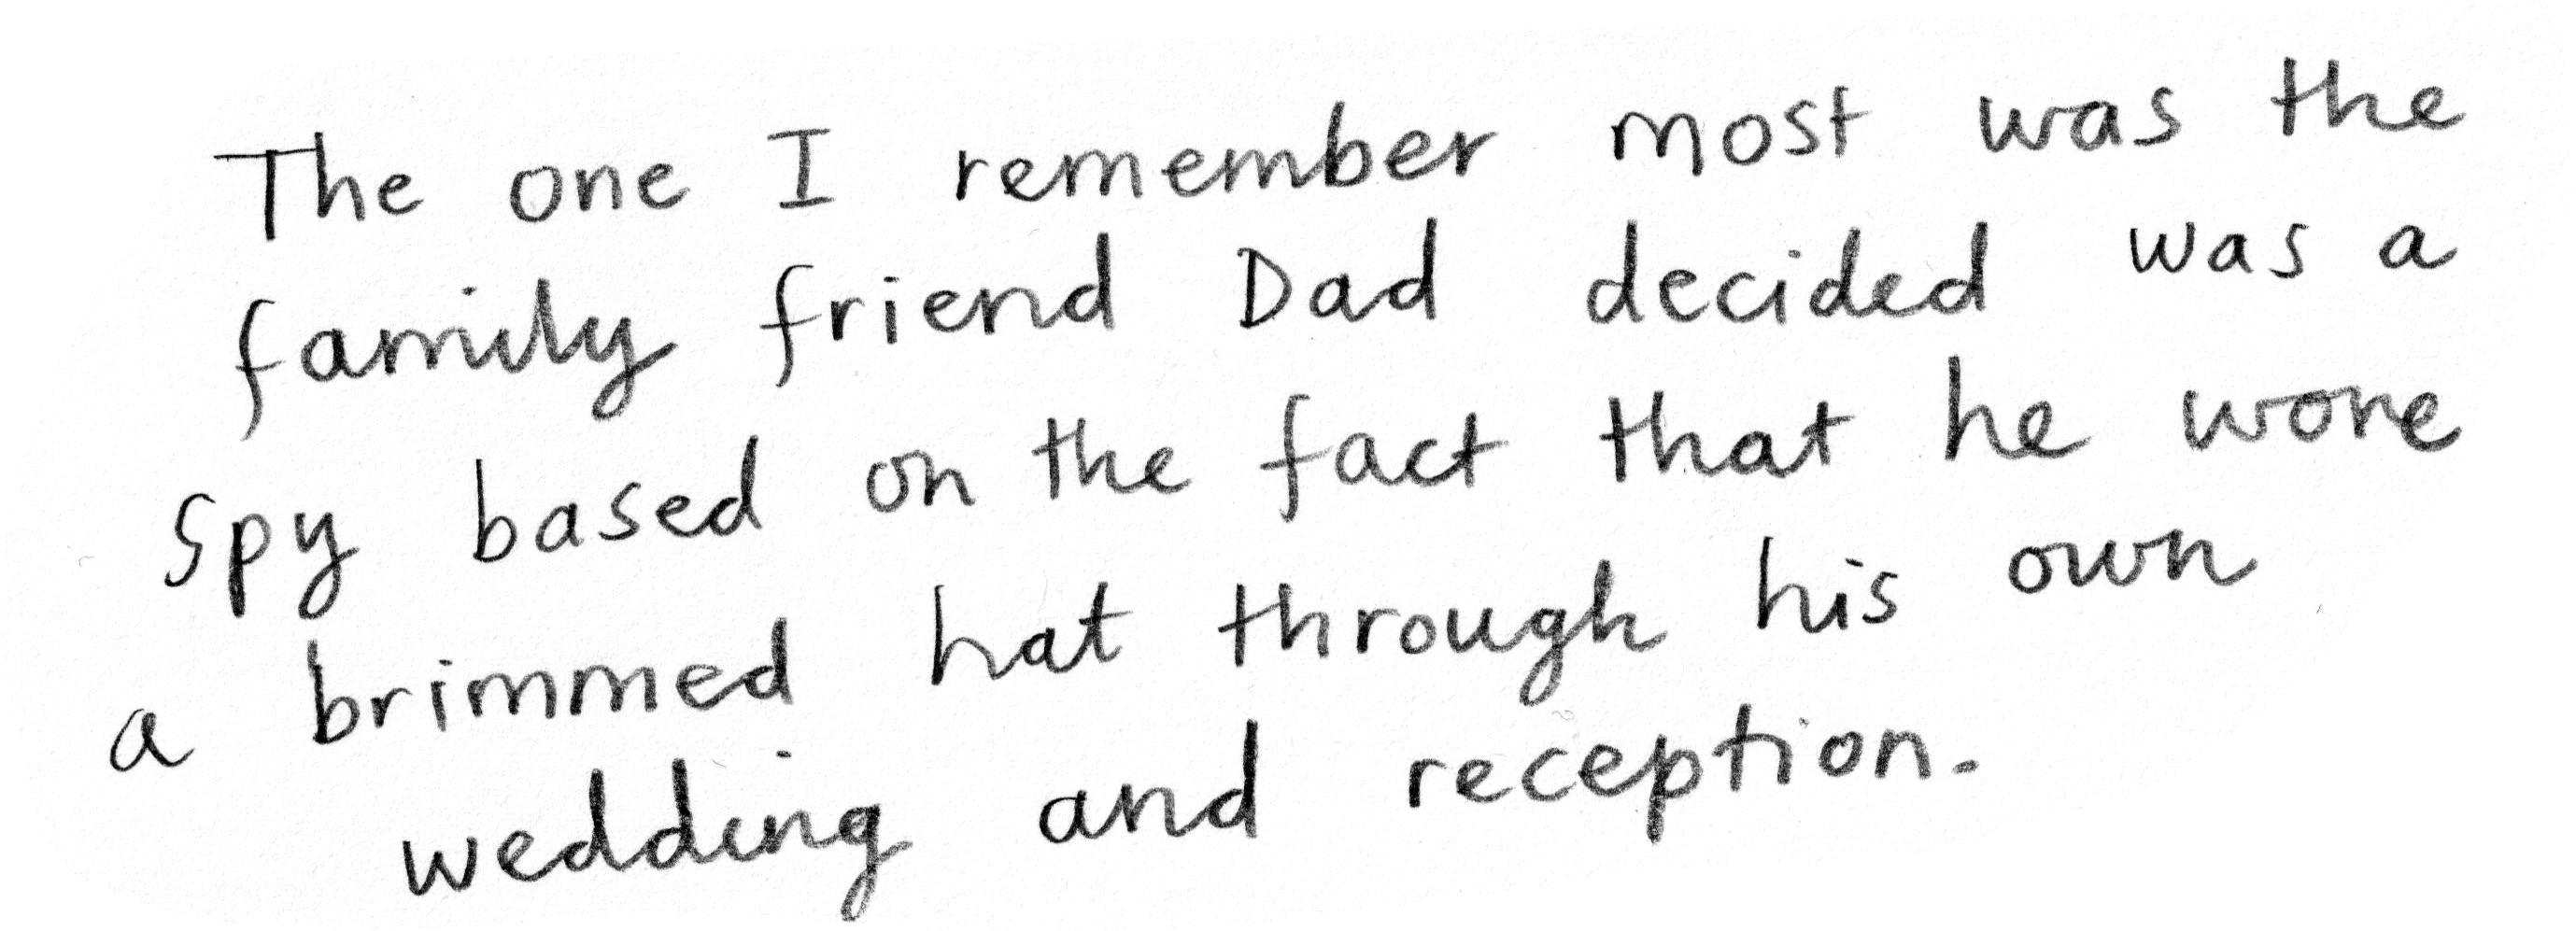 The one I remember most was the
family friend Dad decided was a
spy based on the fact that he wore
a brimmed hat through his own
wedding and reception.